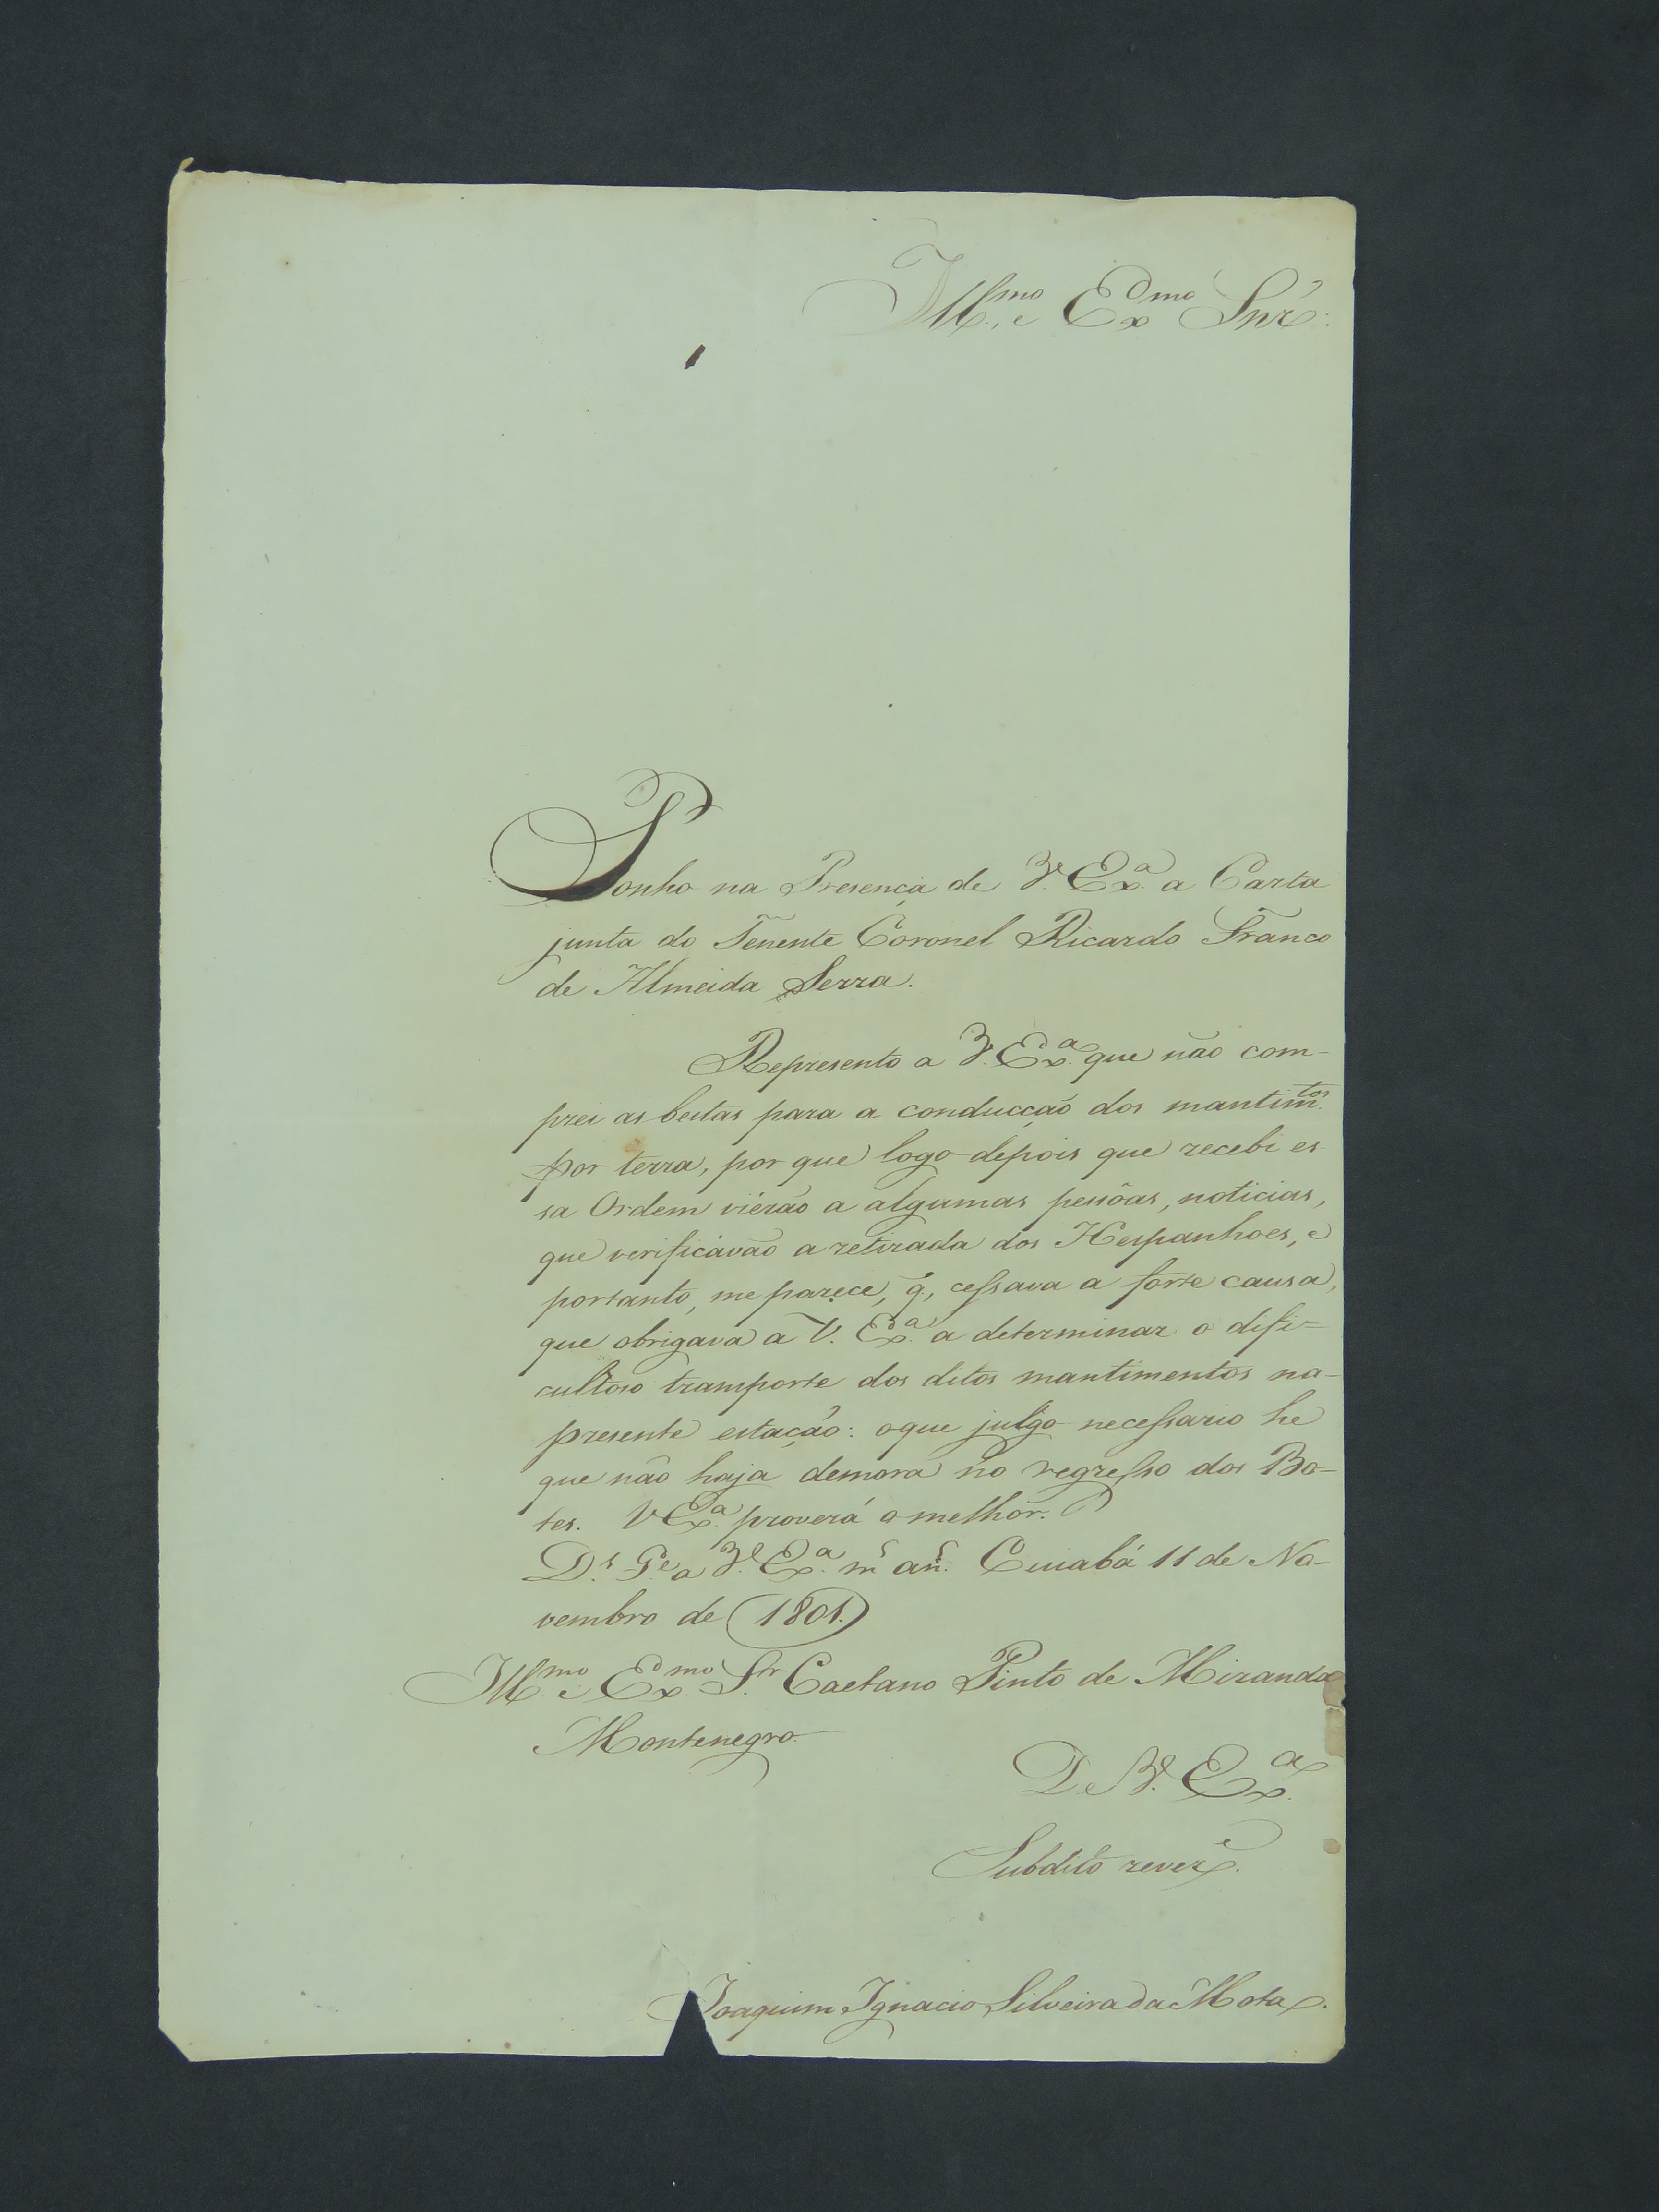 Ill.mo, e Ex.mo Snr:
Ponho na Presença de V. Ex.a a Carta
junta do Tenente Coronel Ricardo Franco
de Almeida Serra.
Represento a V. Ex.a que não com-
prei as bestas para a conducção dos mantim.tos
por terra, por que logo depois que recebi es-
sa Ordem viérão a algumas pessôas, noticias,
que verificávão a retirada dos Hespanhoes, e
portanto, me parece, q̃, cessava a forte causa,
que obrigava a V. Ex.a a determinar o difi-
cultoso transporte dos ditos mantimentos na-
presente estação: oque julgo necessario he
que não haja demora no regresso dos Bo-
tes. V Ex.a proverá o melhor.
D.s G.e a V. Ex.a m.s an.s Cuiabá 11 de No-
vembro de 1801.
Ill.mo e Ex.mo S.r Caetano Pinto de Miranda
Montenegro.
De V. Ex.a
Subdito rever.e
Joaquim Ignacio Silveira da Mota.